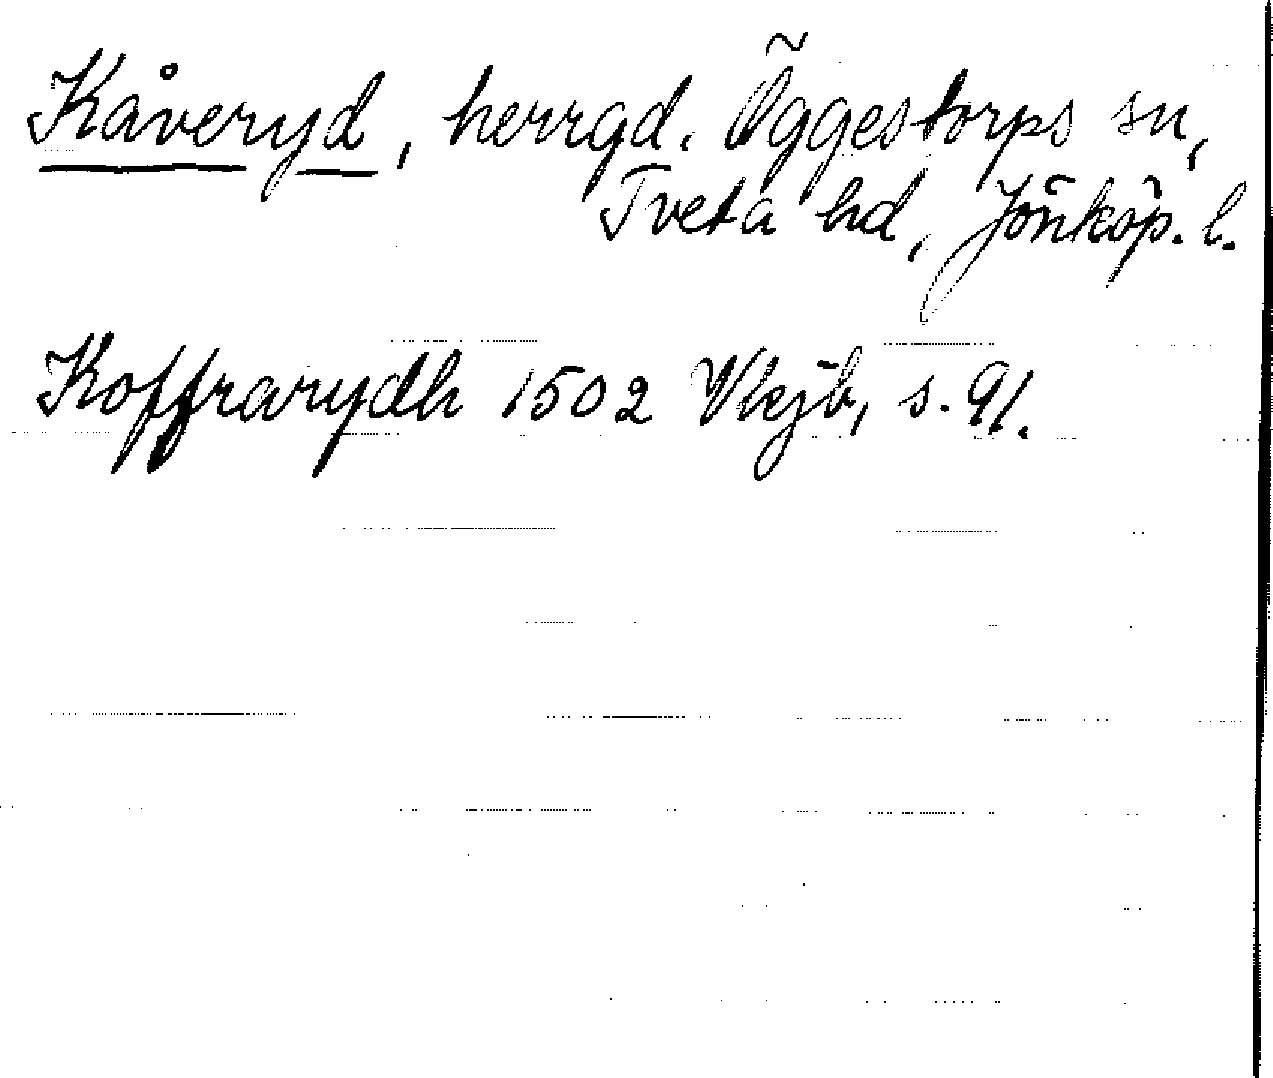 Kåveryd, herrgd. Öggestorps sn,
Tveta hd, Jönköp. l.
Koffrarydh 1502 Vkjb, s. 91.